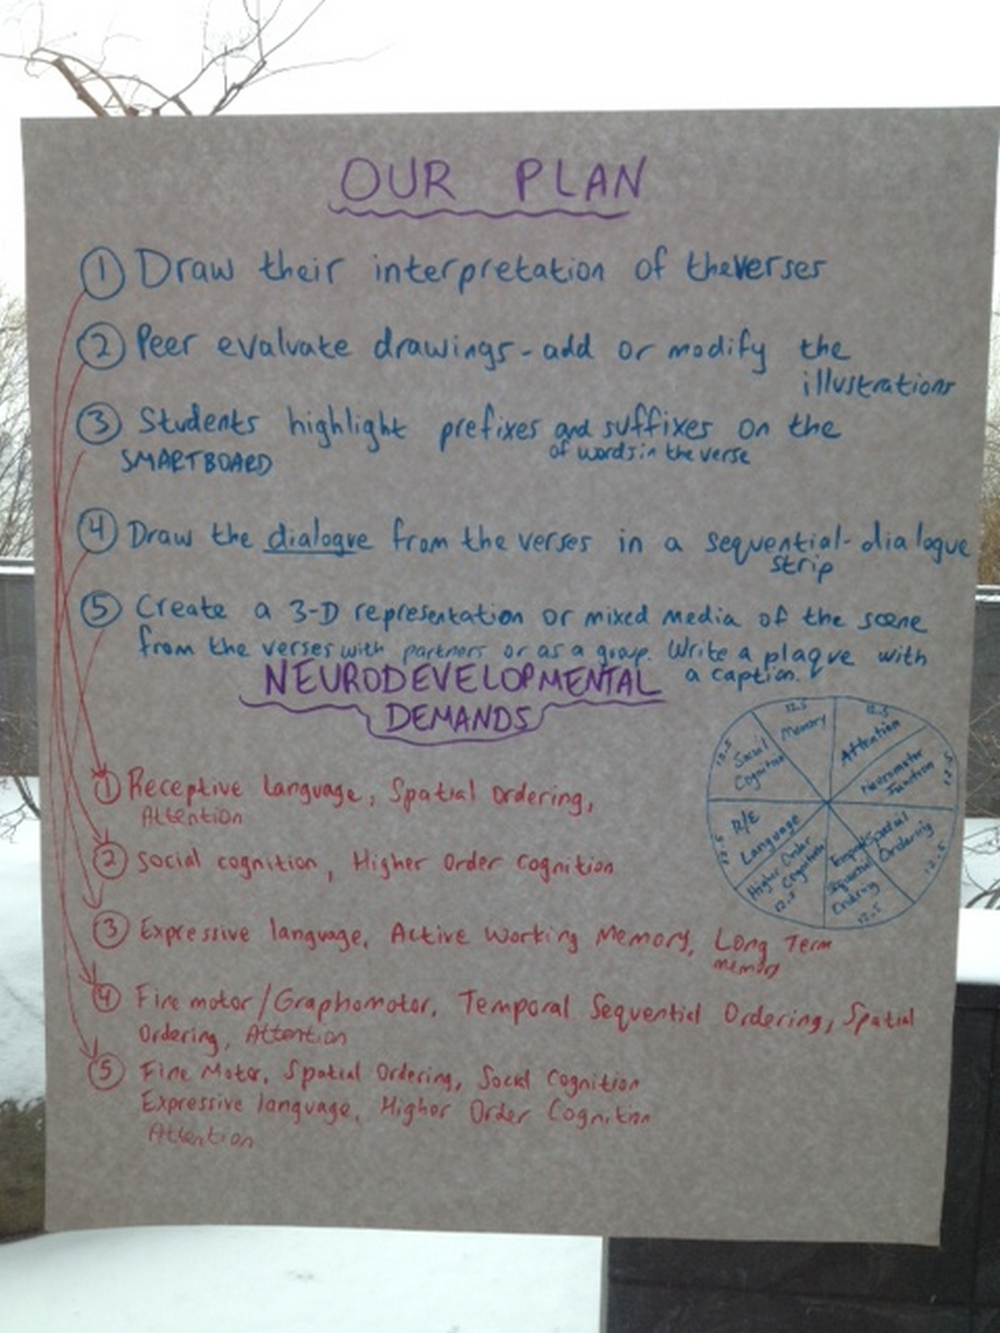 OUR PLAN
① Draw their interpretation of the verses
② Peer evaluate drawings - add or modify the
illustrations
③ Students highlight prefixes and suffixes on the
of words in the verse
SMARTBOARD
④ Draw the dialogue from the verses in a sequential-dialogue
strip
⑤ Create a 3-D representation or mixed media of the scene
from the verses with partners or as a group. Write a plaque with
a caption.
NEURODEVELOPMENTAL
DEMANDS
① Receptive language, Spatial Ordering,
Attention
② Social cognition, Higher Order Cognition
③ Expressive language, Active Working Memory, Long Term
memory
④ Fine motor/Graphomotor, Temporal Sequential Ordering, Spatial
Ordering, Attention
⑤ Fine Motor, Spatial Ordering, Social Cognition
Expressive language, Higher Order Cognition
Attention
12.5
Memory
12.5
Attention
Neuromotor
function
12.5
Spatial
Ordering
12.5
Sequential
Ordering
12.5
Higher Order
Cognition
12.5
R/E
Language
12.5
Social
Cognition
12.5